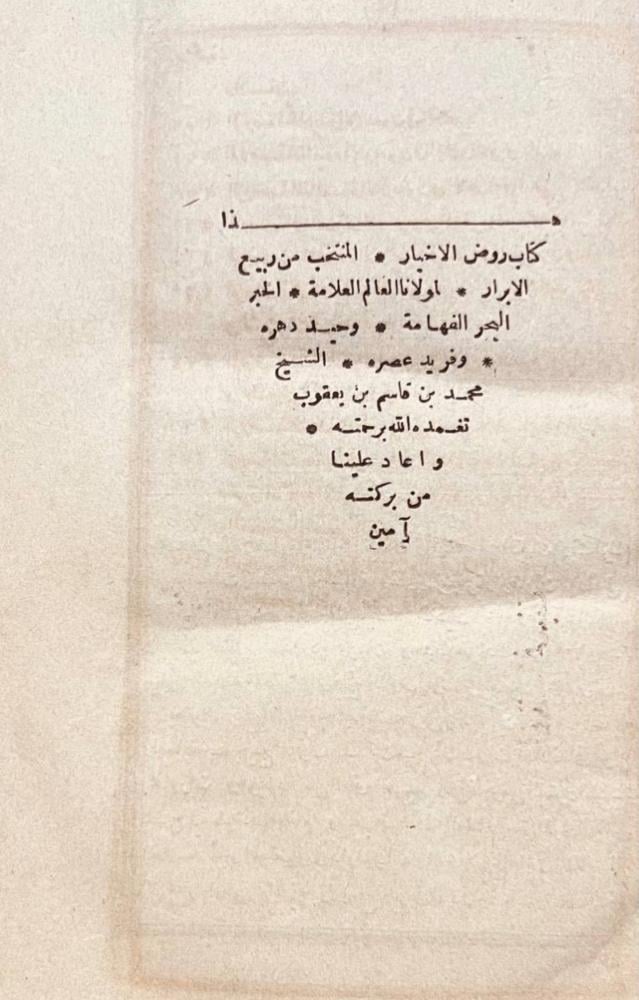 هـــــــذا
كتاب روض الاخيار * المنتخب من ربيع
الابرار * لمولانا العالم العلامة * الحبر
البحر الفهامة * وحيد دهره
* وفريد عصره * الشيخ
محمد بن قاسم بن يعقوب
تغمده الله برحمته *
واعاد علينا
من بركته
آمين